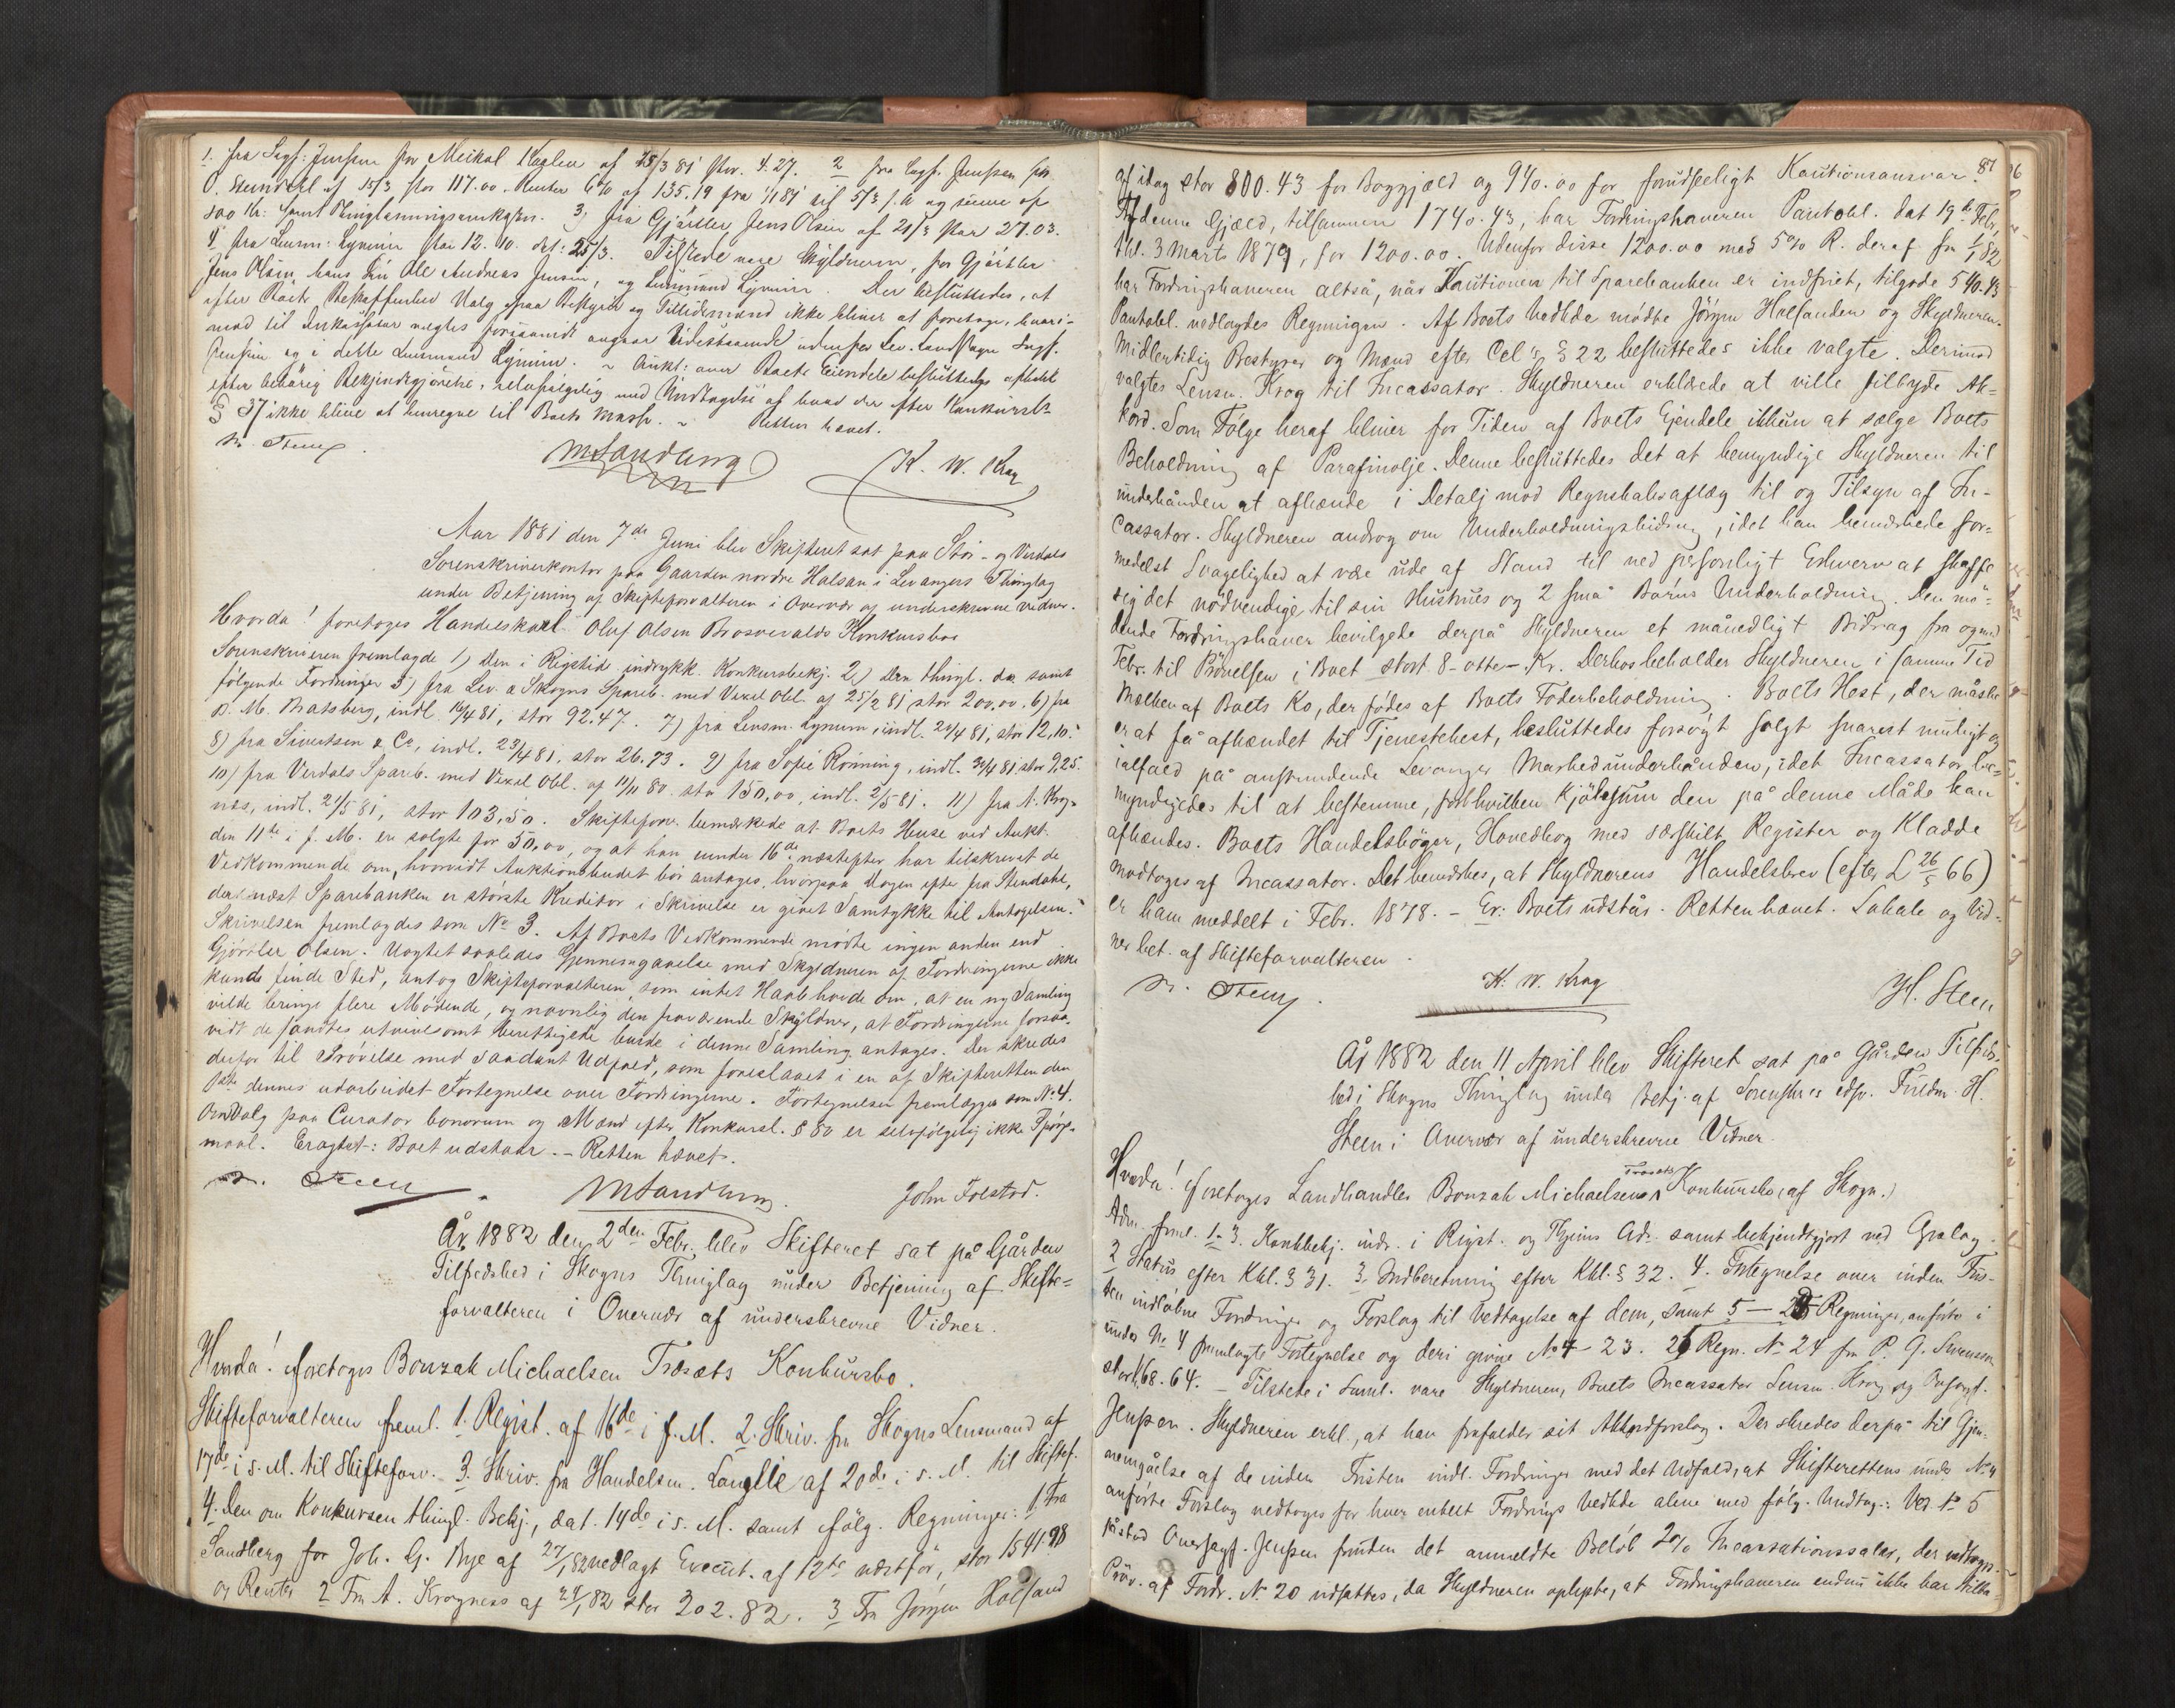 1. fra Sagf: Jenssen for Meikal Kaglen af 15/3 81 stor. 4.27. 2 fra Sagf. Jenssen for
O. Stendahl af 15/3 stor 117.00. Renter 6% af 135.19 fra 1/1 81 til 5/3 s.A og siden af
100 Kr: samt Thinglæsningsomkostn. 3, fra Gjørtler Jens Olsen af 21/3 stor 27.03.
4 fra Lensm: Lynum stor 12.10. dat: 25/3. Tilstede vare Skyldneren, for Gjørtler
Jens Olsen hans Søn Ole Andreas Jensen, og Lensmand Lynum. Der besluttedes, at
efter Boets Beskaffenhed Valg paa Bestyrer og Tillidsmænd ikke bliver at foretage, hvori-
mod til Inkassator valgtes forsaavidt angaar Udestaaende udenfor Lev. Landsogn Sagf.
Jenssen og i dette Lensmand Lynum. ~ Aukt: over Boets Eiendele besluttedes afholdt
efter behørig Bekjendtgjørelse, selvfølgelig med Undtagelse af hvad der efter Konkursl.
§ 37 ikke bliver at henregne til Boets Masse. ~ Retten hævet.
N. Steen
MSandberg
K. W. Krag
Aar 1881 den 7de Juni blev Skifteret sat paa Stør- og Værdals
Sorenskriverkontor paa Gaarden nordre Halsan i Levangers Thinglag
under Betjening af Skifteforvalteren i Overvær af underskrevne Vidner.
Hvorda! foretoges Handelskarl Oluf Olsen Brosvevalds Konkursbo
Sorenskriveren fremlagde 1) Den i Rigstid. indrykk. Konkursbekj. 2) Den thingl. do samt
følgende Fordringer 5) fra Lev. & Skogns Spareb. med Vexel Obl. af 25/2 81 stor 200,00. 6) fra
B. M. Bratsberg, indl. 16/4 81, stor 92.47. 7) fra Lensm. Lynum, indl. 21/4 81, stor 12,10.
8) fra Sivertsen & Co, indl. 23/4 81, stor 26.73. 9) fra Sofie Rønning, indl. 30/4 81 stor 9,25.
10) fra Verdals Spareb. med Vexel Obl. af 11/11 80 stor 150,00, indl. 2/5 81. 11) fra A. Krog-
næs, indl. 21/5 81, stor 103,50. Skiftefore. bemærkede at Boets Huse ved Aukt.
den 11te i f. M. er solgte for 50,00, og at han under 16de næstefter har tilskrevet de
Vedkommende om, hvorvidt Auktionsbudet bør antages, hvorpaa Dagen efter fra Stendahl,
der næst Sparebanken er største Kreditor i Skrivelse er givet Samtykke til Antagelsen.
Skrivelsen fremlagdes som No 3. Af Boets Vedkommende mødte ingen anden end
Gjørtler Olsen. Uagtet saaledes Gjennemgaaelse med Skyldneren af Fordringerne ikke
kunde finde Sted, antog Skifteforvalteren, som intet Haab havde om, at en ny Samling
vilde bringe flere Mødende, og navnlig den fraværende Skyldner, at Fordringerne forsaa-
vidt de fandtes utvivlsomt berettigede burde i denne Samling antages. Der skredes
derfor til Prøvelse med saadant Udfald, som foreslaaet i en af Skifteretten den
1ste dennes udarbeidet Fortegnelse over Fordringerne. Fortegnelsen fremlægges som No 4.
Om Valg paa Curator bonorum og Mænd efter Konkursl. § 80 er selvfølgelig ikke Spørgs-
maal. Eragtet: Boet udstaar. - Retten hævet.
N. Steen
MSandberg.
John Folstad.
År 1882 den 2den Febr. blev Skifteret sat på Gården
Tilfredshed i Skogns Thinglag under Betjening af Skifte=
forvalteren i Overvær af underskrevne Vidner.
Hvorda! foretoges Bonzak Michaelsen Trøsets Konkursbo.
Skifteforvalteren freml. 1. Regist. af 16de i f. M. 2. Skriv. fra Skogns Lensmand af
17de i s. M. til Skifteforv. - 3. Skriv. fra Handelsm. Langlie af 20de i s. M. til Skiftef.
4. Den om Konkursen thingl. Bekj., dat. 14de i s. M. samt følg. Regninger: 1. Fra
Sandberg for Joh. G. Bye af 27/1 82 vedlagt Execut. af 12te næstfør, stor 1541.98
og Renter 2 Fra A. Krognæss af 24/1 82 stor 202.82. 3 Fra Jørgen Holsand
87
af idag stor 800.43 for Boggjæld og 940.00 for forudseeligt Kautionsansvar.
Af denne Gjæld, tilsammen 1740.43, har Fordringshaveren Pantobl. dat 19de Febr,
thl. 3 Marts 1879, for 1200.00. Udenfor disse 1200.00 med 5% R. deraf fra 1/1 82
har Fordringshaveren altså, når Kautionen til Sparebanken er indfriet, tilgode 540.43
Pantobl. vedlagdes Regningen. Af Boets Vedkde mødte Jörgen Holsanden og Skyldneren.
Midlertidig Bestyrer og Mænd efter Cel's § 22 besluttedes ikke valgte. Derimod
valgtes Lensm. Krog til Incassator. Skyldneren erklærede at ville tilbyde Ak-
kord. Som Følge heraf bliver for Tiden af Boets Ejendele ikkun at sælge Boets
Beholdning af Parafinolje. Denne besluttedes det at bemyndige Skyldneren til
underhånden at afhænde i Detalj mod Regnskabsaflæg til og Tilsyn af In-
cassator. Skyldneren androg om Underholdningsbidrag, idet han bemærkede for-
medelst Svagelighed at være ude af Stand til ved personligt Erhverv at skaffe
sig det nødvendige til sin Hustrues og 2 små Børns Underholdning. Den mö-
dende Fordringshaver bevilgede derpå Skyldneren et månedligt Bidrag fra og med
Febr. til Prøvelsen i Boet stort 8 - otte - Kr. Derhos beholder Skyldneren i samme Tid
Melken af Boets Ko, der födes af Boets Foderbeholdning. Boets Hest, der måske
er at få afhændet til Tjenestehest, besluttedes forsøgt solgt snarest muligt og
ialfald på anstundende Levanger Marked underhånden, idet Incassator be-
myndigedes til at bestemme, for hvilken Kjöbesum den på denne Måde kan
afhændes. Boets Handelsbøger, Hovedbog med særskilt Register og Kladde
modtoges af Incassator. Det bemærkes, at Skyldnerens Handelsbrev (efter L 26/5 66)
er ham meddelt i Febr. 1878. - Er: Boets udstår. Retten hævet. Lokale og Vid-
ner bet. af Skifteforvalteren.
N. Steen.
K. W. Krag
H. Steen
År 1882 den 11 April blev Skifteret sat på Gården Tilfreds-
hed i Skogns Thinglag under Betj. af Sorenskr's edsv. Fuldm. H.
Steen i Overvær af underskrevne Vidner.
Hvorda! foretoges Landhandler Bonzak Michaelsens Trøsets Konkursbo (af Skogn.)
Adm. freml. 1-3. Konkbekj. indr. i Rigst. og Thjems Ad. samt bekjendtgjort ved Opslag.
2 Status efter Kkl. § 31. 3. Indberetning efter Kkl. § 32. 4. Fortegnelse over inden Fris-
ten indløbne Fordringer og Forslag til Vedtagelse af dem, samt 5 - 25 Regninger, anførte i
under No 4 fremlagte Fortegnelse og deri givne No 4 - 23. 26 Regn. No 24 fra P. G. Svensson
stor 168.64. - Tilstede i Saml. vare Skyldneren, Boets Incassator Lensm. Krog og Ovsagf.
Jenssen. Skyldneren erkl., at han frafalder sit Akkordforslag. Der skredes derpå til Gjen-
nemgåelse af de inden Fristen indl. Fordringer med det Udfald, at Skifterettens under No 4
anførte Forslag vedtoges for hver enkelt Fordrings Vedkde alene med følg. Undtag.: Ved No 5
påstod Oversagf. Jenssen foruden det anmeldte Beløb 2% Incassationssalær, der vedtoges.
Prøv. af Fordr. No 20 udsattes, da Skyldneren oplyste, at Fordringshaveren endnu ikke har